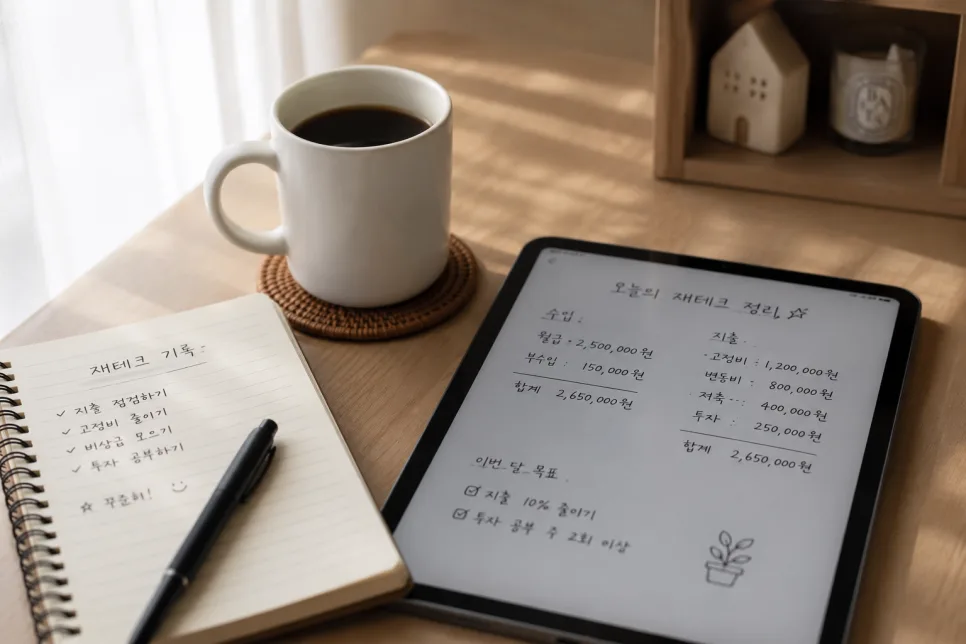 재테크 기록:
✓ 지출 점검하기
✓ 고정비 줄이기
✓ 비상금 모으기
✓ 투자 공부하기
☆ 꾸준히! :)
오늘의 재테크 정리 ☆
수입:
월급 • 2,500,000원
부수입 : 150,000원
합계 2,650,000원
지출:
·고정비 : 1,200,000원
변동비 : 800,000원
저축 : 400,000원
투자 : 250,000원
합계 2,650,000원
이번 달 목표
☑ 지출 10% 줄이기
☑ 투자 공부 주 2회 이상